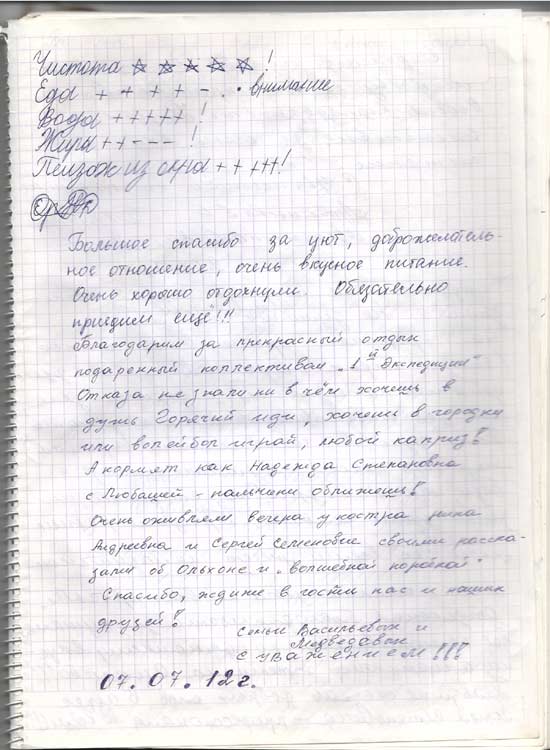 Чистота ☆ ☆ ☆ ☆ ☆ !
Еда + + + + - . • внимание
Вода + + + + + !
Жиры + + - - - !
Пейзаж из окна + + + + !
Большое спасибо за уют, доброжелатель-
ное отношение, очень вкусное питание.
Очень хорошо отдохнули. Обязательно
приедим ещё!!!
Благодарим за прекрасный отдых
подаренный коллективам „1ой Экспедиции"
Отказа не знали ни в чём хочешь в
душ Горячий иди, хочешь в городки
или волейбол играй, любой каприз!
А кормят как Надежда Степановна
с Любашей - пальчики оближешь!
Очень оживляли вечера у костра
Андреевна и Сергей Семенович своими расска-
зами об Ольхоне и „волшебной
Спасибо, ждите в гости нас и наших
друзей!
Семьи Васильевых и
Медведевых
с уважением!!!
07.07.12г.